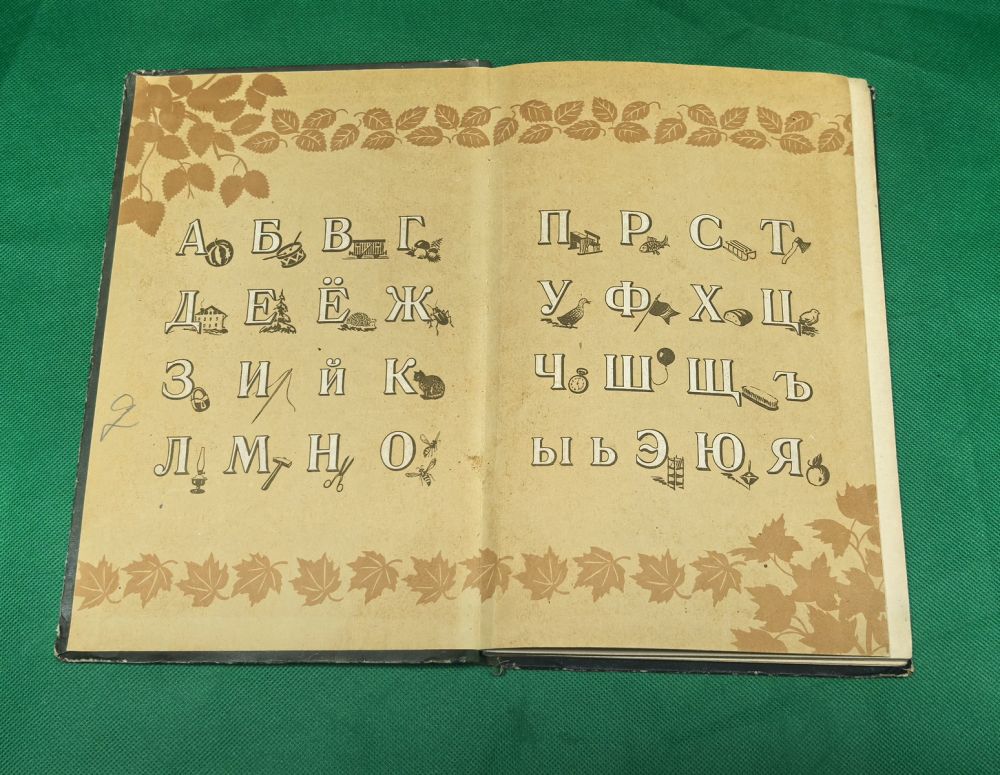 А Б В Г
Д Е Ё Ж
З И й К
Л М Н О
П Р С Т
У Ф Х Ц
Ч Ш Щ Ъ
Ы Ь Э Ю Я